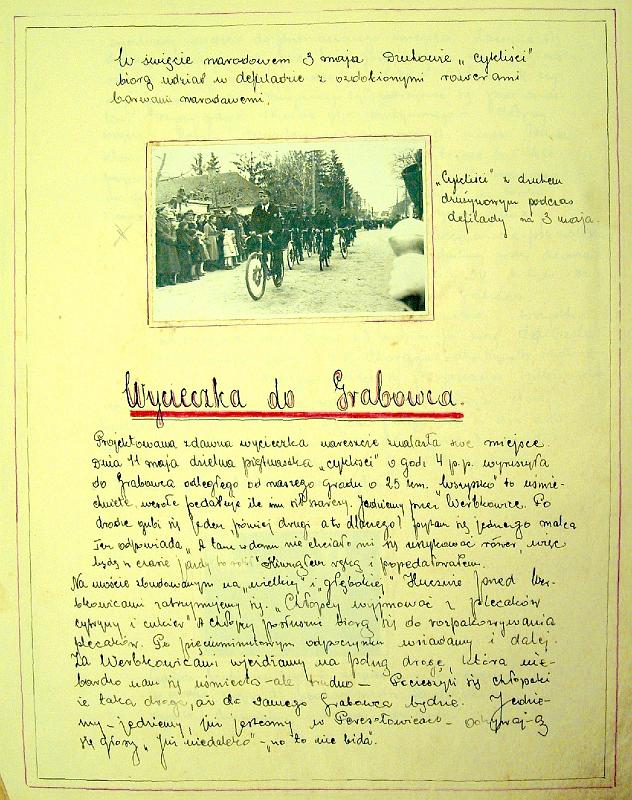 W święcie narodowem 3 maja Druhowie „cykliści"
biorą udział w defiladzie z ozdobionymi rowerami
barwami narodowemi.
„Cykliści" z druhem
drużynowym podczas
defilady na 3 maja.
Wycieczka do Grabowca.
Projektowana zdawna wycieczka nareszcie znalazła swe miejsce.
Dnia 11 maja dzielna piętnastka „cykliści" o godz 4 p.p. wyruszyła
do Grabowca odległego od naszego grodu o 25 km. Wszystko to uśmie-
chnięte, wesołe pedałuje ile mu sił starczy. Jedziemy przez Werbkowice. Po
drodze gubi się jeden później drugi a to dlaczego? pytam się jednego malca
Ten odpowiada „A tam w domu nie chciało mi się szykować rower, więc
będę w czasie jazdy to robił"
Na moście zbudowanym na „wielkiej" i „głębokiej" Huczwie przed Wer-
bkowicami zatrzymujemy się. „Chłopcy wyjmować z plecaków
cytryny i cukier" A chłopcy posłuszni biorą się do rozpakowywania
plecaków. Po pięciominutowym odpoczynku wsiadamy i dalej.
Za Werbkowicami wjeżdżamy na polną drogę, która nie-
bardzo nam się uśmiecha - ale trudno - Pocieszyli się chłopcki
że taka droga, aż do samego Grabowca będzie. Jedzie-
my - jedziemy, już jesteśmy w Peresołowicach - odzywają
się głosy „już niedaleko" - „no to nie bida".